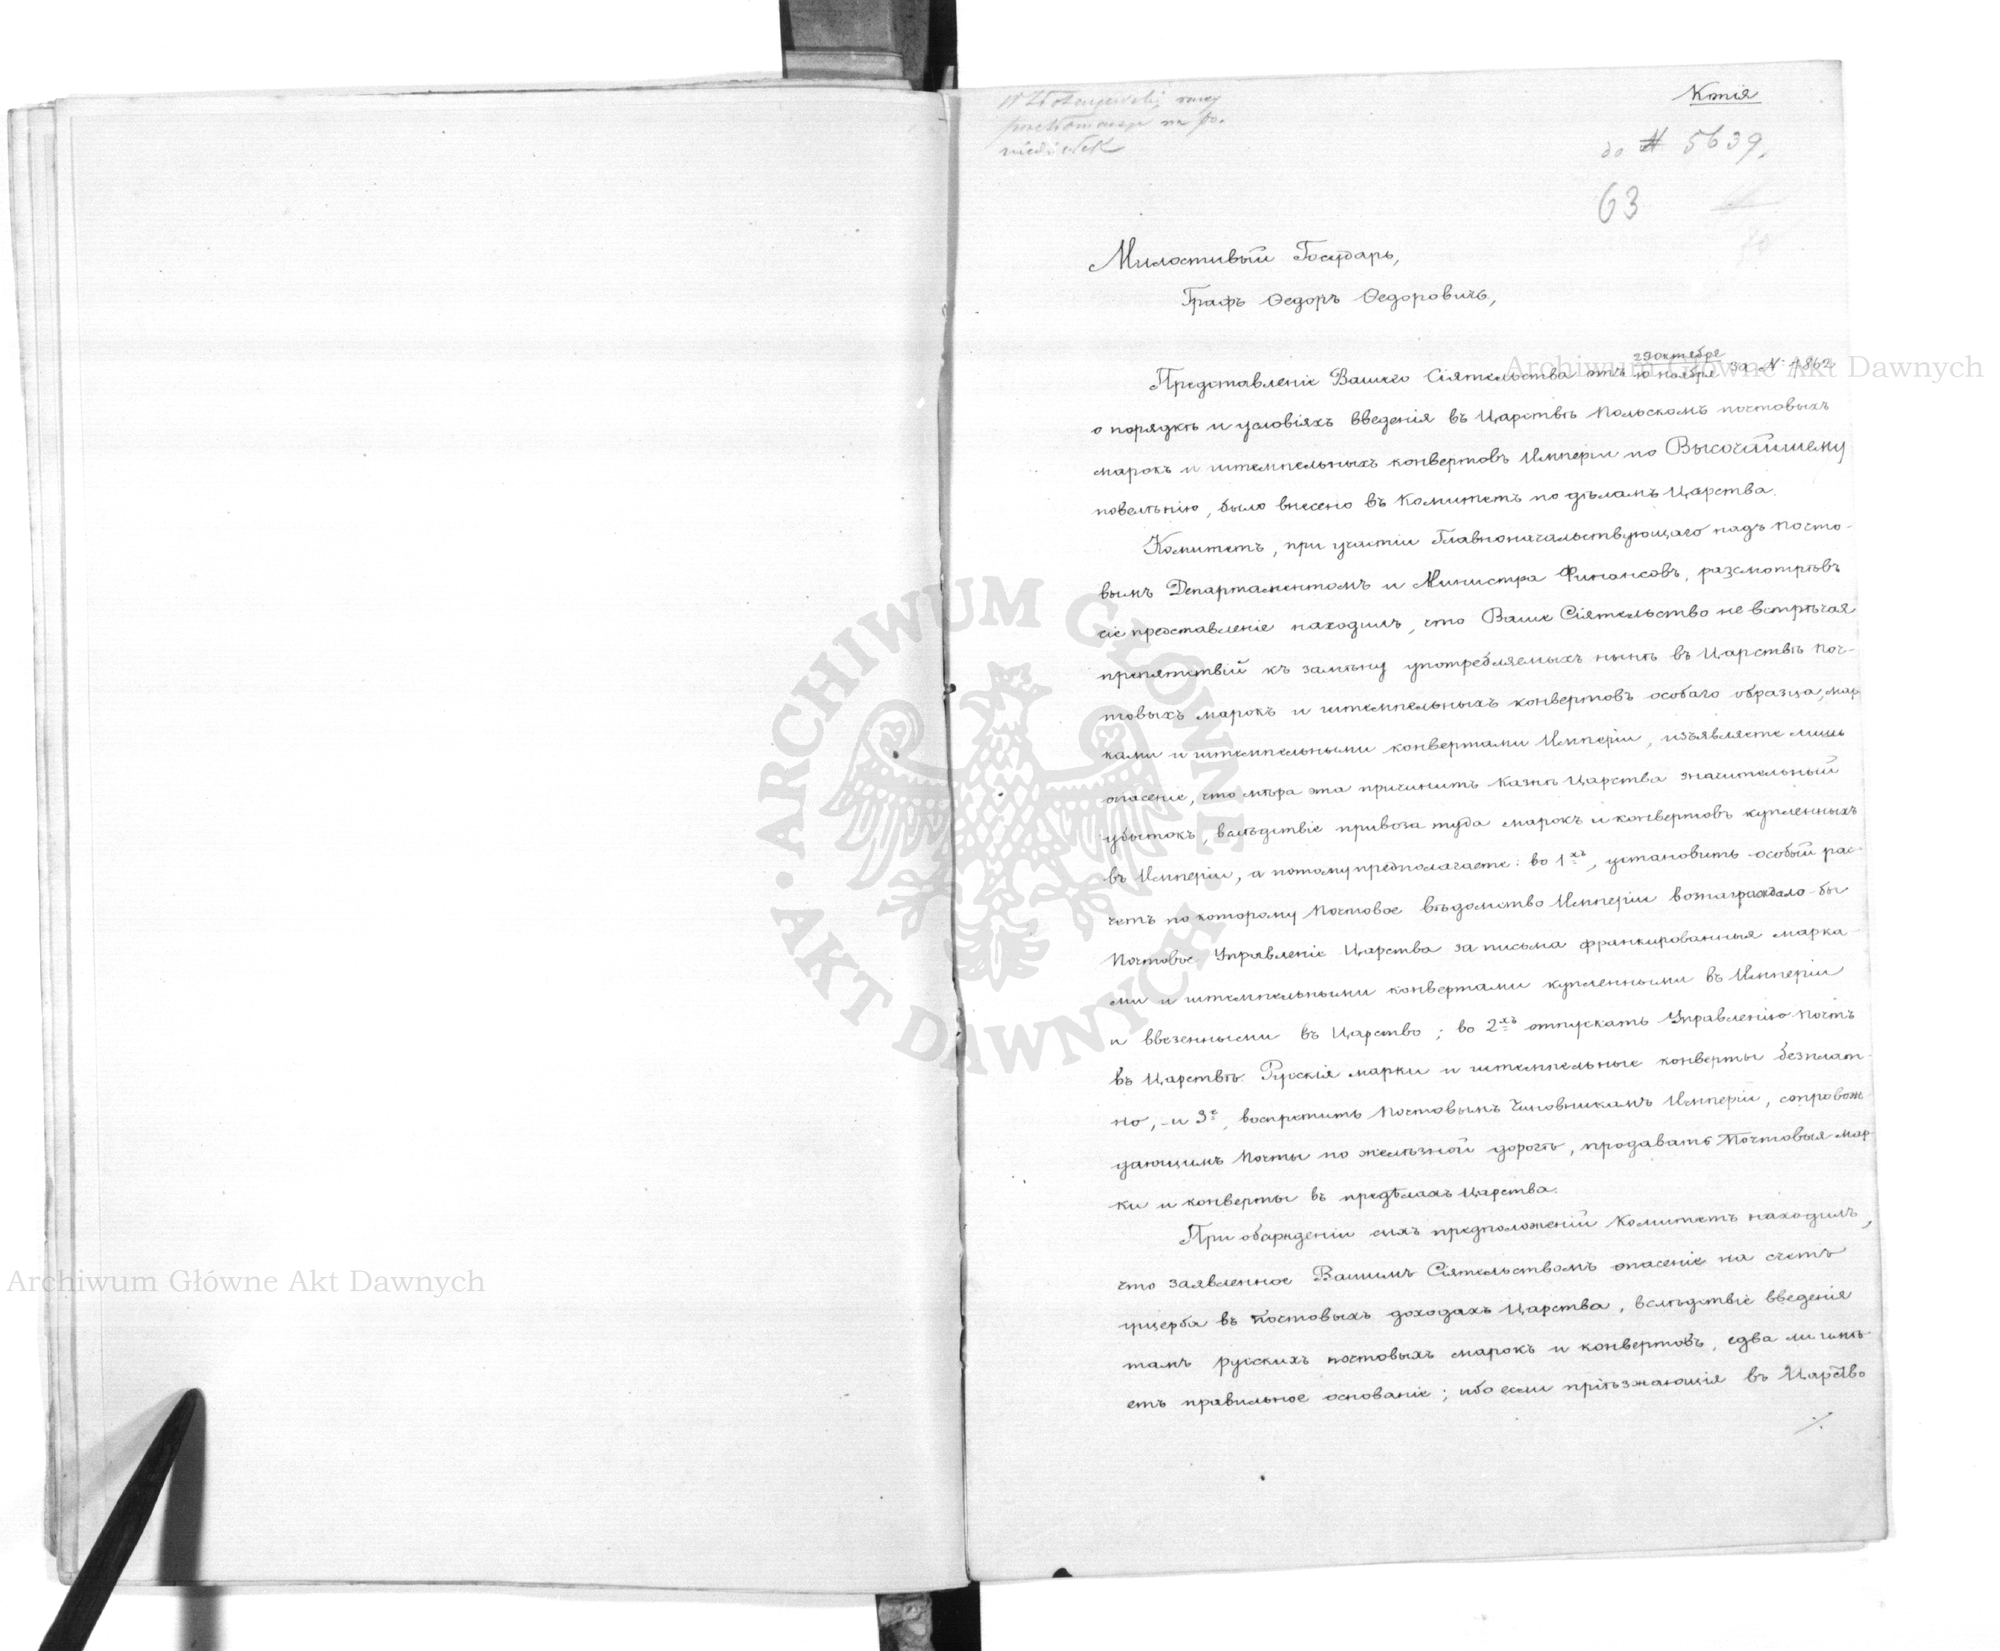 Копія
до № 5639.
63
Милостивый Государь,
Графъ Ѳедоръ Ѳедоровичъ,
Представленіе Вашего Сіятельства отъ 29 Октября / 10 Ноября за № 4862
о порядкѣ и условіяхъ введенія въ Царствѣ Польскомъ почтовыхъ
марокъ и штемпельныхъ конвертовъ Имперіи по Высочайшему
повелѣнію, было внесено въ Комитетъ по дѣламъ Царства.
Комитетъ, при участіи Главноначальствующаго надъ Почто-
вымъ Департаментомъ и Министра Финансовъ, разсмотрѣвъ
сіе представленіе находилъ, что Ваше Сіятельство не встрѣчая
препятствій къ замѣну употребляемыхъ нынѣ въ Царствѣ поч-
товыхъ марокъ и штемпельныхъ конвертовъ особаго образца, мар
ками и штемпельными конвертами Имперіи, изъявляете лишь
опасеніе, что мѣра эта причинитъ Казнѣ Царства значительный
убытокъ, вслѣдствіе привоза туда марокъ и конвертовъ купленныхъ
въ Имперіи, а потому предполагаете: во 1хъ, установить особый рас-
четъ по которому Почтовое вѣдомство Имперіи вознаграждало-бы
Почтовое Управленіе Царства за письма франкированныя марка-
ми и штемпельными конвертами купленными въ Имперіи
и ввезенными въ Царство; во 2хъ отпускать Управленію Почтъ
въ Царствѣ Русскія марки и штемпельные конверты безплат-
но, -и 3е, воспретить Почтовымъ Чиновникамъ Имперіи, сопровож-
дающимъ Почты по желѣзной дорогѣ, продавать Почтовыя мар
ки и конверты въ предѣлахъ Царства.
При обсужденіи сихъ предположеній Комитетъ находилъ,
что заявленное Вашимъ Сіятельствомъ опасеніе на счетъ
ущерба въ Почтовыхъ доходахъ Царства, вслѣдствіе введенія
тамъ русскихъ почтовыхъ марокъ и конвертовъ, едва ли имѣ-
етъ правильное основаніе; ибо если пріѣзжающія въ Царство
./.
Archiwum Główne Akt Dawnych
Archiwum Główne Akt Dawnych
· ARCHIWUM GŁÓWNE · AKT DAWNYCH